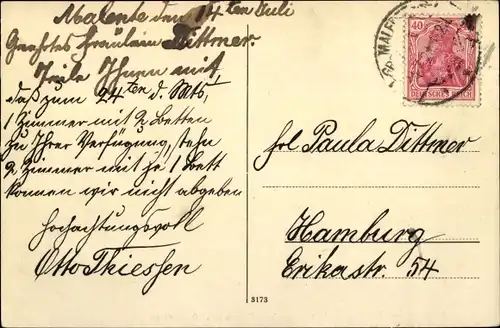 Malente den 14ten Juli
Geehrtes Fräulein Dittmer.
Teile Ihnen mit,
daß zum 24ten d. Mts,
1 Zimmer mit 2 Betten
zu Ihrer Verfügung, stehn
2 Zimmer mit je 1 Bett
können wir nicht abgeben
Hochachtungsvoll
Otto Thiessen
40
DEUTSCHES REICH
Frl Paula Dittmer
Hamburg
Erikastr. 54
3173